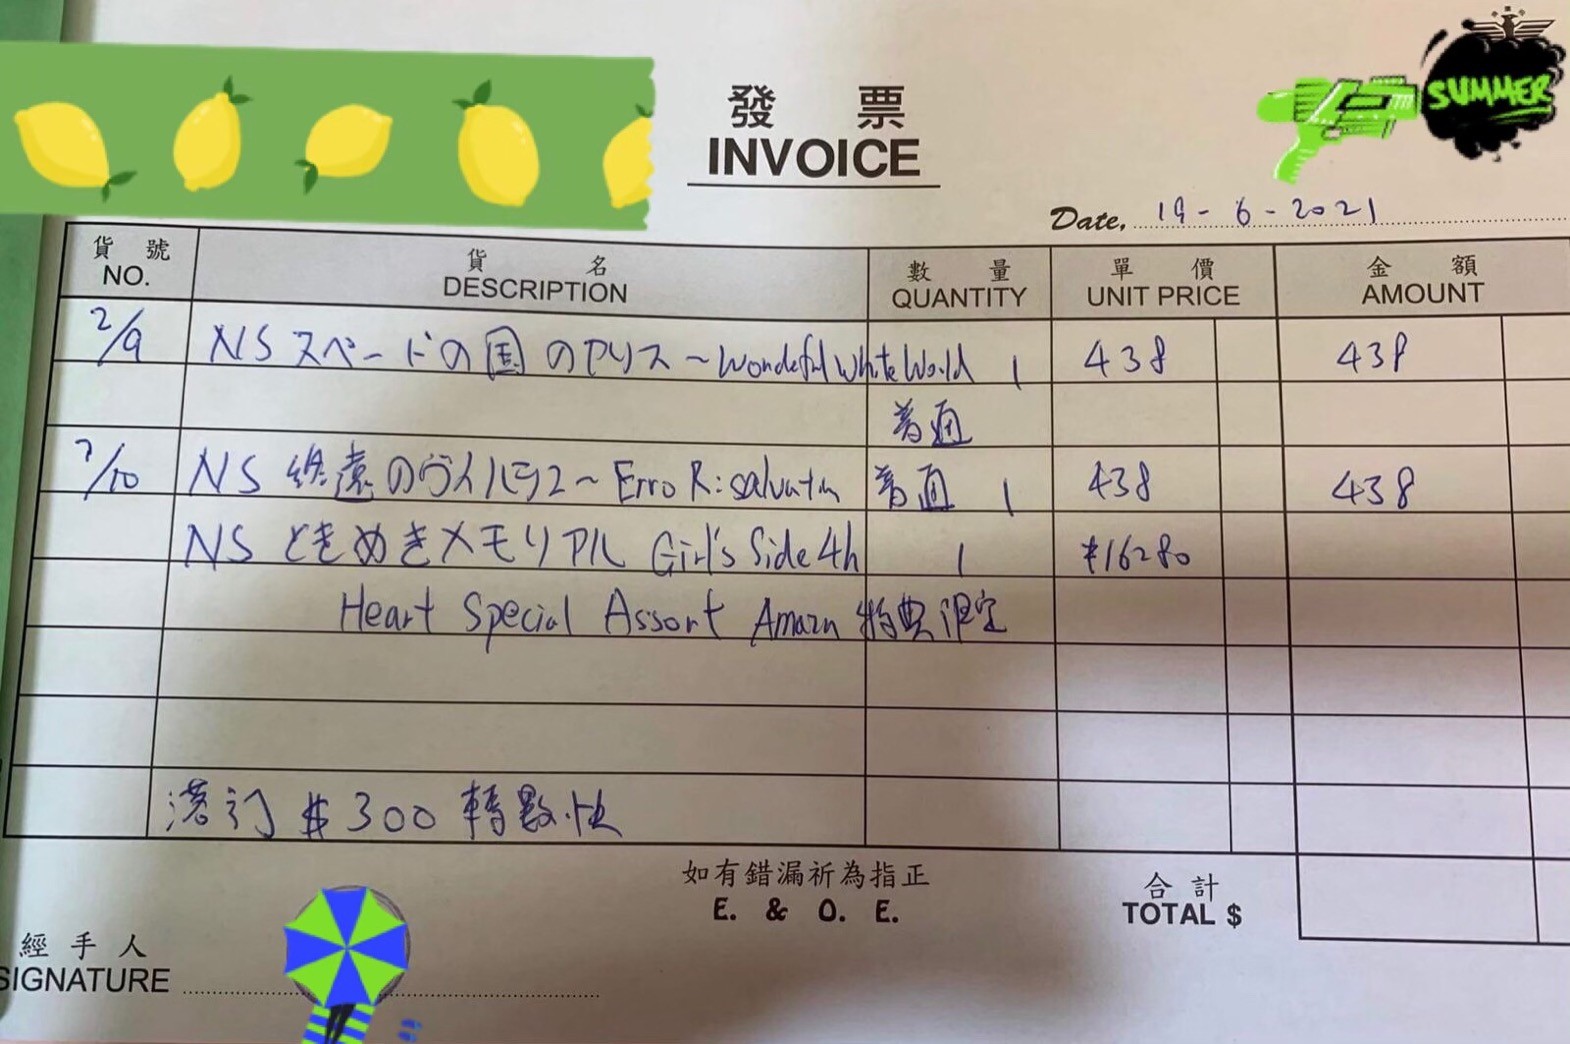 發票
INVOICE
SUMMER
Date, 19-6-2021
貨號 貨名 數量 單價 金額
NO. DESCRIPTION QUANTITY UNIT PRICE AMOUNT
2/9 NS スペードの国のアリス～Wonderful White World 1 438 438
普通
7/10 NS 終遠のヴィルシュ～ErroR:salvation 普通 1 438 438
NS ときめきメモリアル Girl's Side 4th 1 ¥16280
Heart Special Assort Amazon 特典限定
落订 $300 轉數快
如有錯漏祈為指正
E. & O. E.
合計
TOTAL $
經手人
SIGNATURE